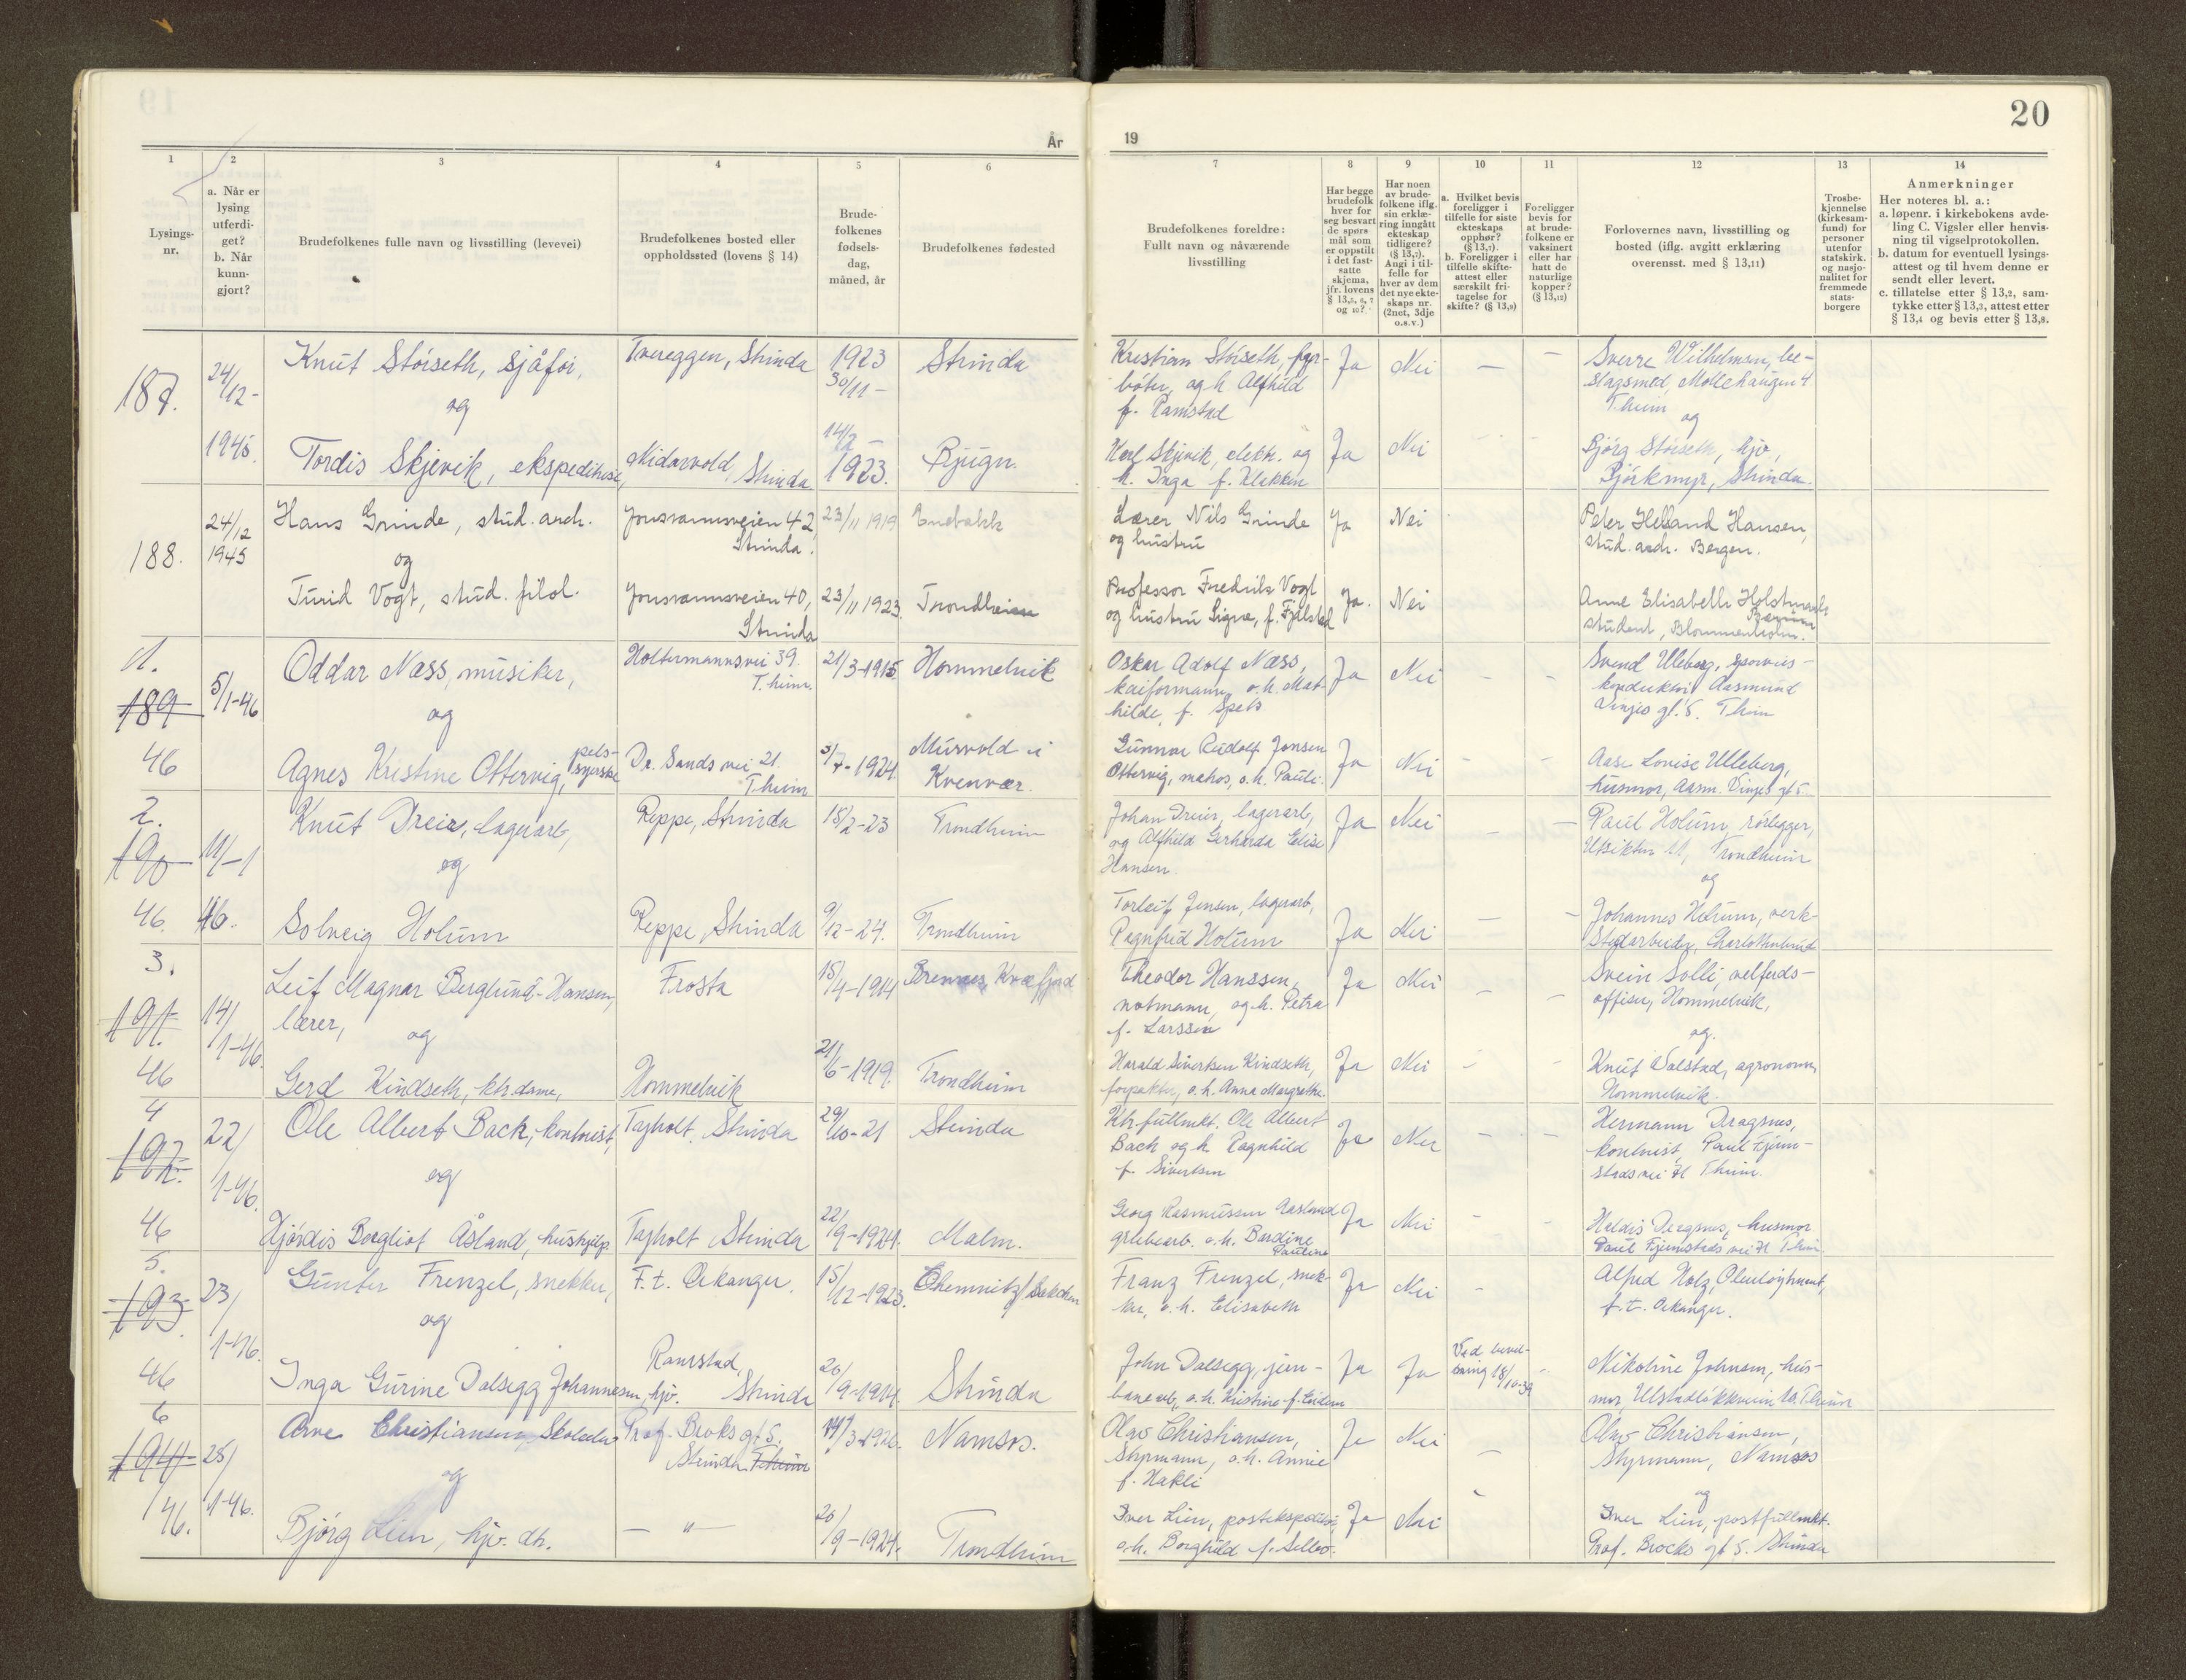 20
År
19
1
2
3
4
5
6
7
8
9
10
11
12
13
14
Lysings-
nr.
a. Når er
lysing
utferdi-
get?
b. Når
kunn-
gjort?
Brudefolkenes fulle navn og livsstilling (levevei)
Brudefolkenes bosted eller
oppholdssted (lovens § 14)
Brude-
folkenes
fødsels-
dag,
måned, år
Brudefolkenes fødested
Brudefolkenes foreldre:
Fullt navn og nåværende
livsstilling
Har begge
brudefolk
hver for
seg besvart
de spørs
mål som
er oppstilt
i det fast-
satte
skjema,
jfr. lovens
§ 13,5, 6, 7
og 10?
Har noen
av brude-
folkene iflg.
sin erklæ-
ring inngått
ekteskap
tidligere?
(§ 13,7).
Angi i til-
felle for
hver av dem
det nye ekte-
skaps nr.
(2net, 3dje
o.s.v.)
a. Hvilket bevis
foreligger i
tilfelle for siste
ekteskaps
opphør?
(§ 13,7).
b. Foreligger i
tilfelle skifte-
attest eller
særskilt fri-
tagelse for
skifte? (§ 13,9)
Foreligger
bevis for
at brude-
folkene er
vaksinert
eller har
hatt de
naturlige
kopper?
(§ 13,12)
Forlovernes navn, livsstilling og
bosted (iflg. avgitt erklæring
overensst. med § 13,11)
Trosbe-
kjennelse
(kirkesam-
fund) for
personer
utenfor
statskirk.
og nasjo-
nalitet for
fremmede
stats-
borgere
Anmerkninger
Her noteres bl. a.:
a. løpenr. i kirkebokens avde-
ling C. Vigsler eller henvis-
ning til vigselprotokollen.
b. datum for eventuell lysings-
attest og til hvem denne er
sendt eller levert.
c. tillatelse etter § 13,2, sam-
tykke etter § 13,3, attest etter
§ 13,4 og bevis etter § 13,8.
187.
24/12-
1945.
Knut Stöiseth, sjåfør, Tvereggen, Strinda 1923 30/11- Strinda
Kristian Stöiseth, fyr-
böter, og h. Alfhild
f. Ramstad
Ja Nei — —
Sverre Wilhelmsen, be-
slagsmed, Møllehaugen 4
T.heim
og
og
Tordis Skjevik, ekspeditrise, Nidarvold, Strinda 14/2 - 1923. Bjugn.
Karl Skjevik, elektr. og
h. Inga f. Klakken
Ja Nei
Bjørg Stöiseth, hjv,
Björkmyr, Strinda.
188.
24/12
1945
Hans Grinde, stud. arch. Jonsvannsveien 42, Strinda. 23/11 1919 Enebakk
Lærer Nils Grinde
og hustru
Ja Nei
Peter Helland Hansen,
stud. arch. Bergen.
og
Turid Vogt, stud. filol. Jonsvannsveien 40, Strinda 23/11 1923. Trondheim
Professor Fredrik Vogt
og hustru Signe, f. Fjelstad
Ja. Nei
Anne Elisabeth Holstmark
student, Blommenholm. Bærum
1.
189
46
5/1-46
Oddar Næss, musiker, Holtermannsvei 39. T.heim. 21/3-1915 Hommelvik
Oskar Adolf Næss,
kaiformann, o.h. Mat-
hilde, f. Spets
Ja Nei - -
Svend Ulleberg, sporveis-
konduktør Aasmund
Vinjes gt. 5. T.heim
og
Agnes Kristine Ottervig, pels-
syerske Dr. Sands vei 21. T.heim 3/7-1924. Musvold i
Kvenvær.
Gunnar Rudolf Jonsen
Ottervig, matros, o.h. Pauli.
Ja Nei - -
Aase Lovise Ulleberg,
husmor, Aasm. Vinjes gt 5.
2.
190
46.
11/-1
46.
Knut Dreier, lagerarb, Reppe, Strinda 15/2-23 Trondheim
Johan Dreier, lagerarb,
og Alfhild Gerharda Elise
Hansen.
Ja Nei - —
Paul Holum, rørlegger,
Utsikten 11, Trondheim
og
og
Solveig Holum Reppe, Strinda 9/12-24. Trondheim
Torleif Jensen, lagerarb,
Ragnfrid Holum
Ja Nei — -
Johannes Holum, verk-
stedarbeider, Charlottenlund
3.
191.
46
14/
1-46.
Leif Magnar Berglund-Hansen,
lærer, Frosta 15/4-1914 Brennes, Kvæfjord
Theodor Hanssen,
notmann, og h. Petra
f. Larssen
Ja Nei - -
Svein Solli, velferds-
offiser, Hommelvik,
og.
og
Gerd Kindseth, ktr.dame, Hommelvik 21/6-1919. Trondheim
Harald Sivertsen Kindseth,
forpakter, o.h. Anna Margrethe.
Ja Nei - -
Knut Valstad, agronom,
Hommelvik.
4
192.
46
22/
1-46.
Ole Albert Back, kontorist, Tyholt, Strinda 29/10-21 Strinda
Ktr.fullmkt. Ole Albert
Back og h. Ragnhild
f. Sivertsen
Ja Nei - -
Hermann Dragsnes,
kontorist, Paul Fjerm-
stads vei 71 T.heim.
og
Hjördis Borgliot Åsland, hushjelp. Tyholt Strinda 22/9-1924. Malm.
Georg Rasmussen Aasland
grubearb. o.h. Bardine
Pauline
Ja Nei - -
Heldis Dragsnes, husmor
Paul Fjermstads vei 71 T.heim
5.
193.
46
23/
1-46.
Günter Frenzel, snekker, F.t. Orkanger. 15/12-1923. Chemnitz/Sachsen
Franz Frenzel, snek-
ker, o.h. Elisabeth
Ja Nei -
Alfred Holz, Oberleutnant,
f.t. Orkanger.
og
Inga Gurine Dalsegg Johannesen, hjv. Ranstad, Strinda 20/9-1914. Strinda
John Dalsegg, jern-
banearb., o.h. Kristine f. Eidem
Ja Ja Ved bevil-
ning 18/10-39 -
Nikoline Johnsen, hus-
mor, Ulstadløkkveien 10. T.heim
6
194
46.
25/
1-46.
Arne Christiansen, Skoleelev Prof. Broks gt 5. Strinda T.heim 14/3-1926. Namsos.
Olav Christiansen,
Styrmann, o.h. Annie
f. Hakli
Ja Nei —
Olav Christiansen,
Styrmann, Namsos
og
og
Bjørg Lien, hjv. dtr. — " — 20/9-1924. Trondheim
Iver Lien, postekspeditör,
o.h. Borghild f. Selbo.
Ja Nei
Iver Lien, postfullmkt.
Prof. Brocks gt 5. Strinda